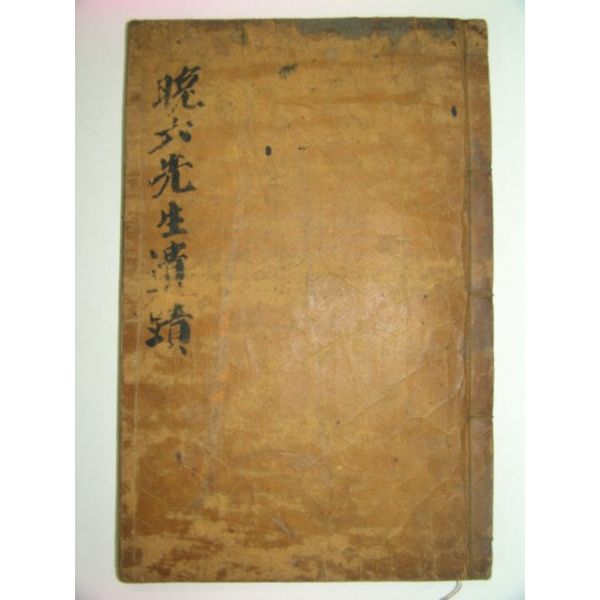 晩六先生遺蹟